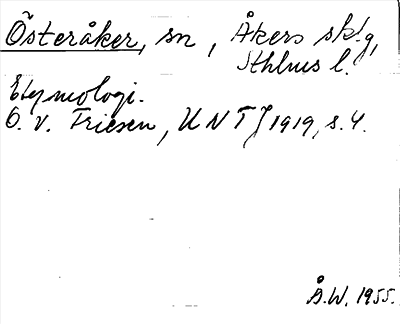 Österåker, sn, Åkers skg,
Sthlms l.
Etymologi.
O. v. Friesen, UNT J 1919, s. 4.
Å.W. 1955.